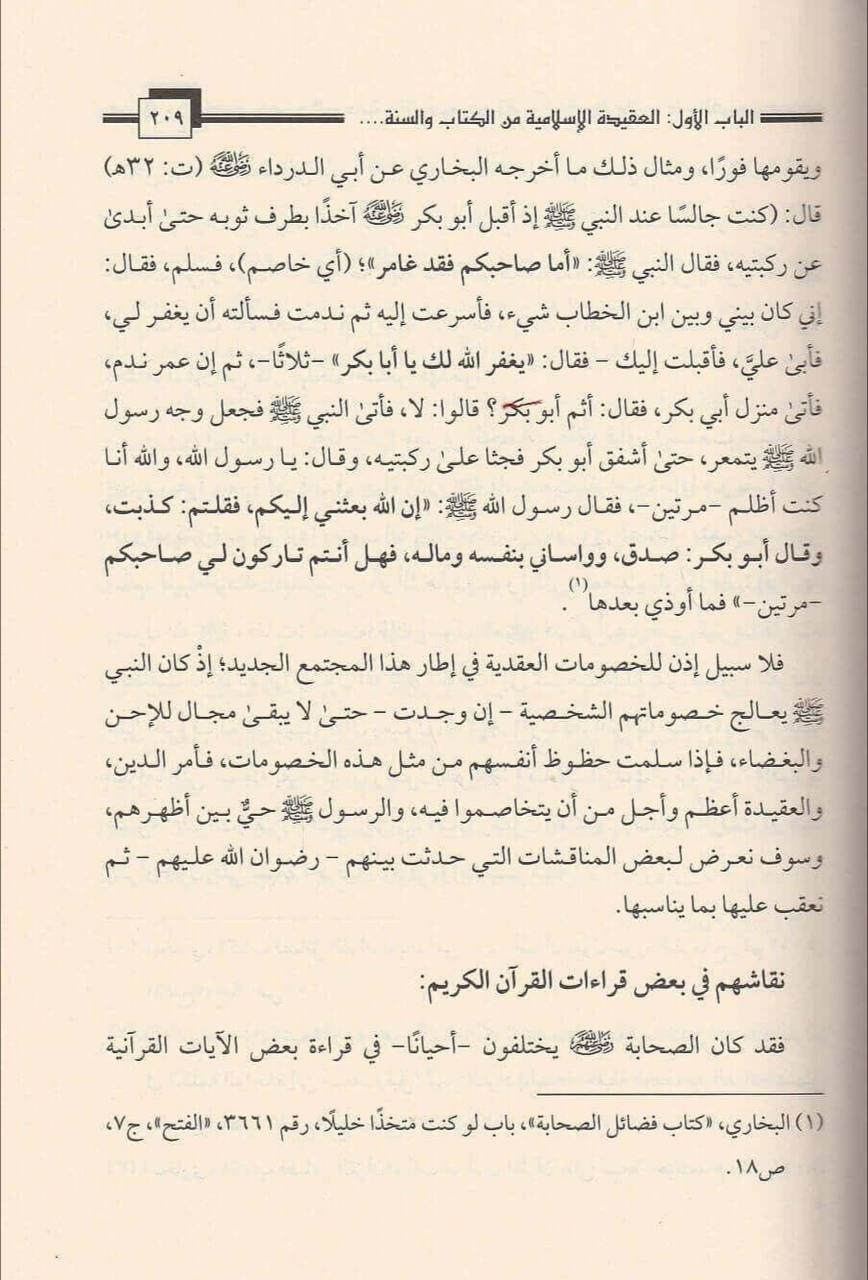 الباب الأول: العقيدة الإسلامية من الكتاب والسنة.... ٢٠٩
ويقومها فورًا، ومثال ذلك ما أخرجه البخاري عن أبي الدرداء رضي الله عنه (ت: ٣٢هـ)
قال: (كنت جالسًا عند النبي ﷺ إذ أقبل أبو بكر رضي الله عنه آخذًا بطرف ثوبه حتىٰ أبدىٰ
عن ركبتيه، فقال النبي ﷺ: «أما صاحبكم فقد غامر»؛ (أي خاصم)، فسلم، فقال:
إني كان بيني وبين ابن الخطاب شيء، فأسرعت إليه ثم ندمت فسألته أن يغفر لي،
فأبىٰ عليَّ، فأقبلت إليك - فقال: «يغفر الله لك يا أبا بكر» -ثلاثًا-، ثم إن عمر ندم،
فأتىٰ منزل أبي بكر، فقال: أثم أبو بكر؟ قالوا: لا، فأتىٰ النبي ﷺ فجعل وجه رسول
الله ﷺ يتمعر، حتىٰ أشفق أبو بكر فجثا علىٰ ركبتيه، وقال: يا رسول الله، والله أنا
كنت أظلم -مرتين-، فقال رسول الله ﷺ: «إن الله بعثني إليكم، فقلتم: كذبت،
وقال أبو بكر: صدق، وواساني بنفسه وماله، فهل أنتم تاركون لي صاحبكم
-مرتين-» فما أوذي بعدها(١).
فلا سبيل إذن للخصومات العقدية في إطار هذا المجتمع الجديد؛ إذْ كان النبي
ﷺ يعالج خصوماتهم الشخصية - إن وجدت - حتىٰ لا يبقىٰ مجال للإحن
والبغضاء، فإذا سلمت حظوظ أنفسهم من مثل هذه الخصومات، فأمر الدين،
والعقيدة أعظم وأجل من أن يتخاصموا فيه، والرسول ﷺ حيٌّ بين أظهرهم،
وسوف نعرض لبعض المناقشات التي حدثت بينهم - رضوان الله عليهم - ثم
نعقب عليها بما يناسبها.
نقاشهم في بعض قراءات القرآن الكريم:
فقد كان الصحابة رضي الله عنهم يختلفون -أحيانًا- في قراءة بعض الآيات القرآنية
(١) البخاري، «كتاب فضائل الصحابة»، باب لو كنت متخذًا خليلًا، رقم ٣٦٦١، «الفتح»، ج٧،
ص١٨.